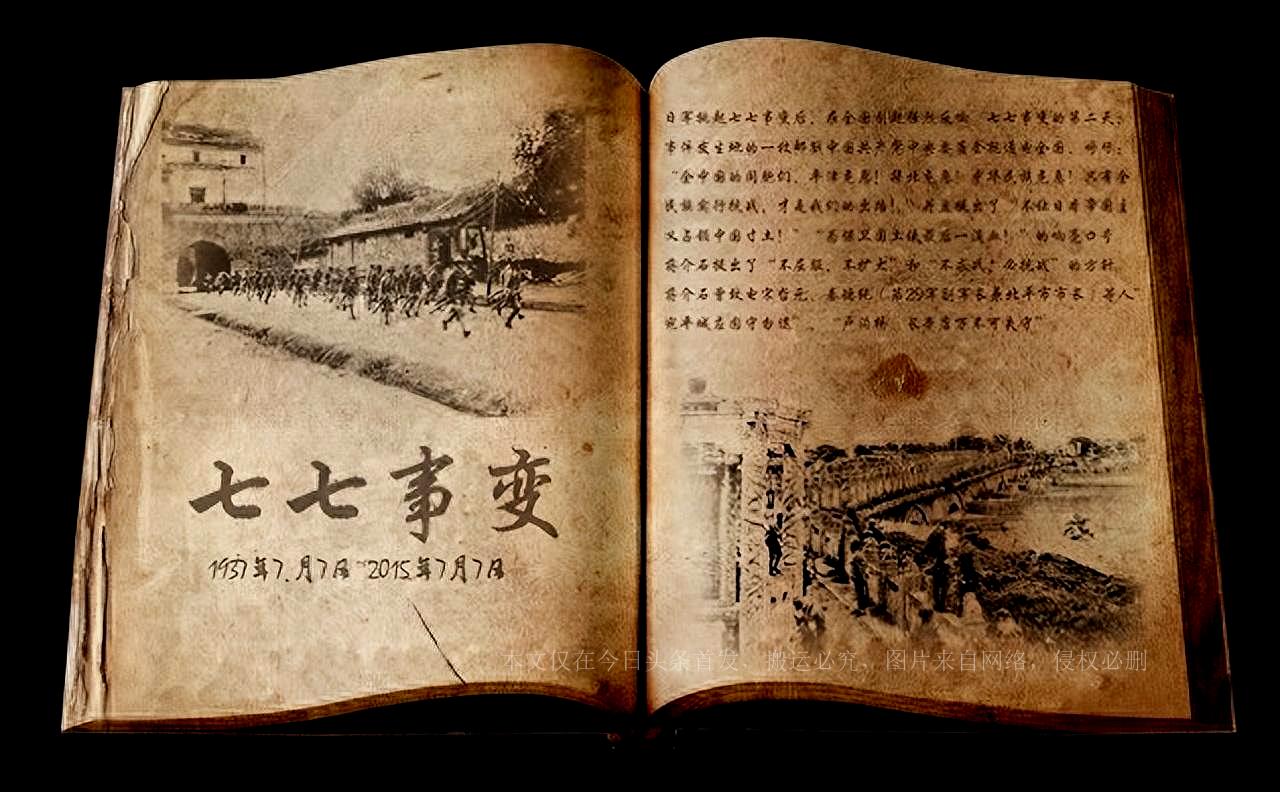 七七事变
1937年7.月7日-2015年7月7日
日军挑起七七事变后，在全国引起强烈反响 七七事变的第二天，
事件发生地的一枚邮戳中国共产党中央委员会就通电全国，呼吁：
“全中国的同胞们，平津危急！华北危急！中华民族危急！只有全
民族实行抗战，才是我们的出路！”并且提出了“不让日本帝国主
义占领中国寸土！”“为保卫国土流最后一滴血！”的响亮口号
蒋介石提出了“不屈服，不扩大”和“不求战，必抗战”的方针
蒋介石曾致电宋哲元、秦德纯（第29军副军长兼北平市市长）等人“
宛平城应固守勿退”，“卢沟桥 长辛店万不可失守”
本文仅在今日头条首发，搬运必究，图片来自网络，侵权必删